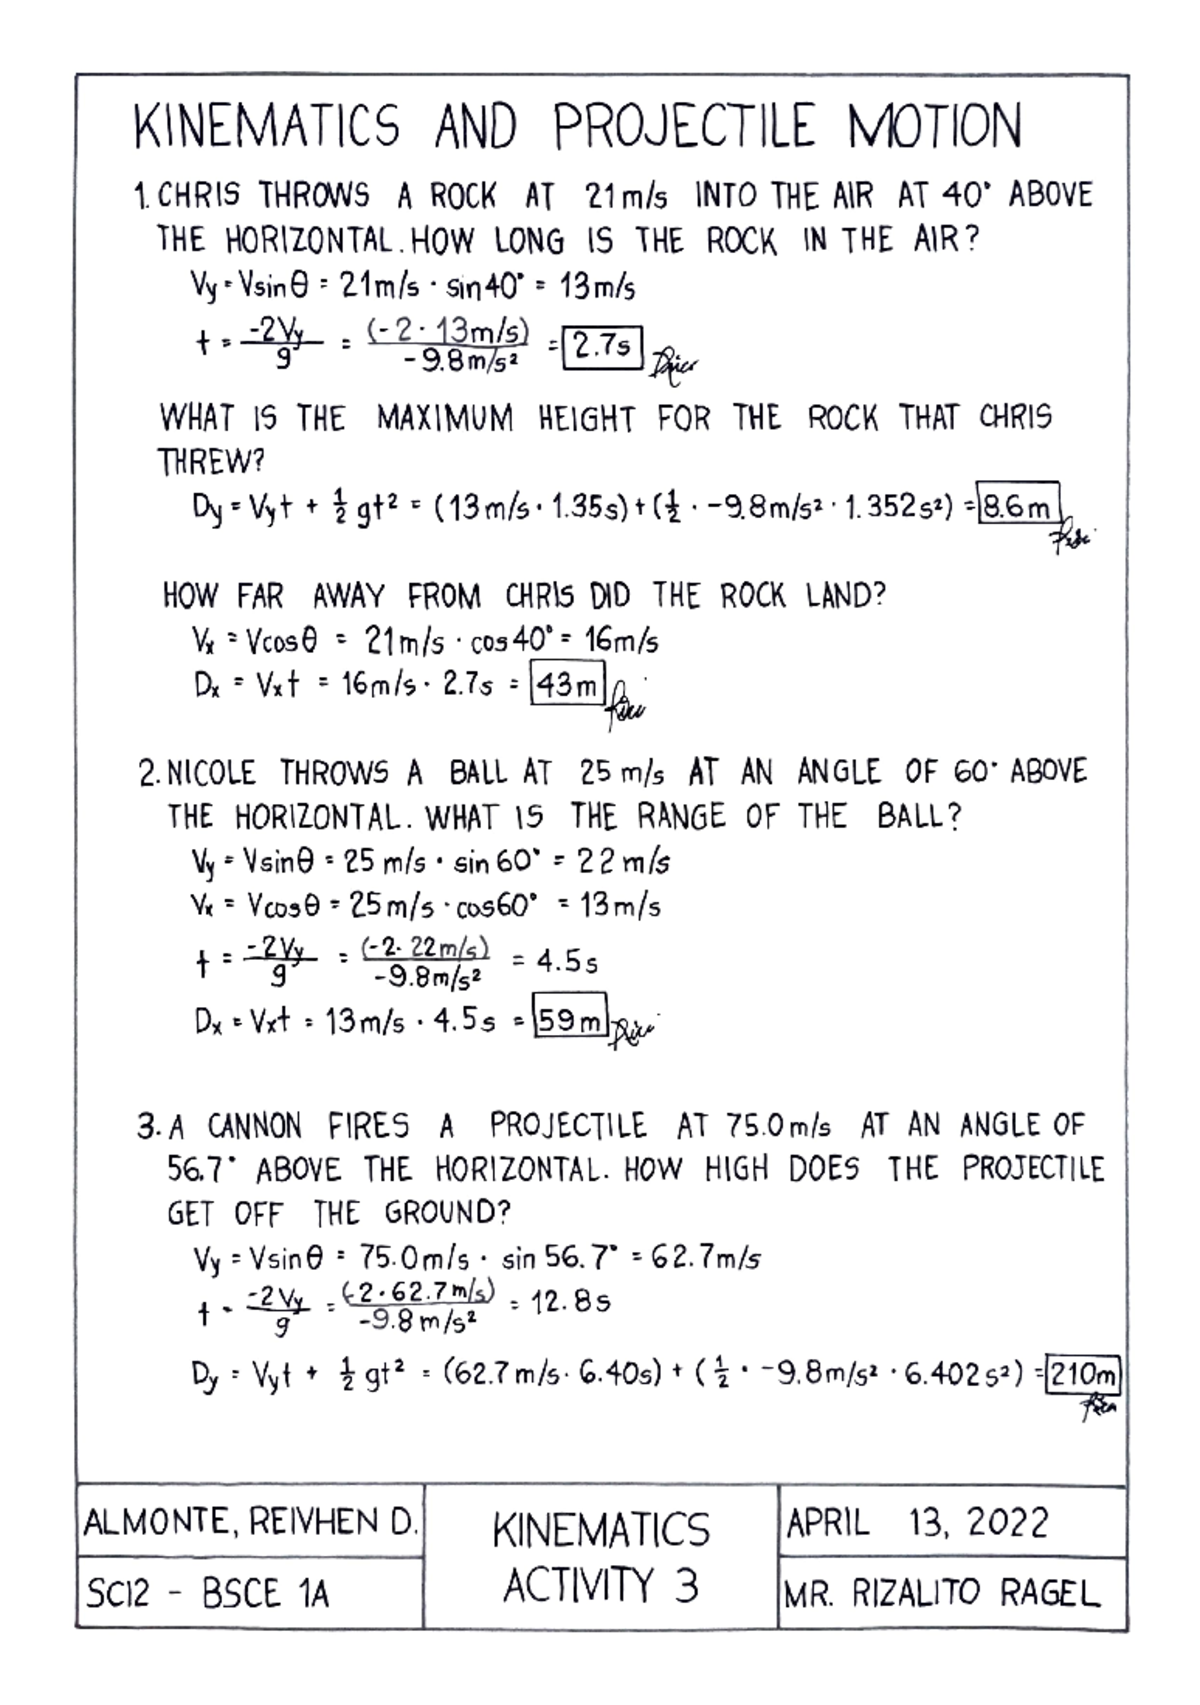 KINEMATICS AND PROJECTILE MOTION
1. CHRIS THROWS A ROCK AT 21 m/s INTO THE AIR AT 40° ABOVE
THE HORIZONTAL. HOW LONG IS THE ROCK IN THE AIR?
Vy = Vsinθ = 21 m/s · sin 40° = 13 m/s
t = -2Vy/g = (-2 · 13 m/s)/-9.8 m/s² = 2.7s
WHAT IS THE MAXIMUM HEIGHT FOR THE ROCK THAT CHRIS
THREW?
Dy = Vyt + ½ gt² = (13 m/s · 1.35s) + (½ · -9.8 m/s² · 1.352 s²) = 8.6 m
HOW FAR AWAY FROM CHRIS DID THE ROCK LAND?
Vx = Vcosθ = 21 m/s · cos 40° = 16 m/s
Dx = Vxt = 16 m/s · 2.7s = 43 m
2. NICOLE THROWS A BALL AT 25 m/s AT AN ANGLE OF 60° ABOVE
THE HORIZONTAL. WHAT IS THE RANGE OF THE BALL?
Vy = Vsinθ = 25 m/s · sin 60° = 22 m/s
Vx = Vcosθ = 25 m/s · cos 60° = 13 m/s
t = -2Vy/g = (-2 · 22 m/s)/-9.8 m/s² = 4.5 s
Dx = Vxt = 13 m/s · 4.5 s = 59 m
3. A CANNON FIRES A PROJECTILE AT 75.0 m/s AT AN ANGLE OF
56.7° ABOVE THE HORIZONTAL. HOW HIGH DOES THE PROJECTILE
GET OFF THE GROUND?
Vy = Vsinθ = 75.0 m/s · sin 56.7° = 62.7 m/s
t = -2Vy/g = (-2 · 62.7 m/s)/-9.8 m/s² = 12.8 s
Dy = Vyt + ½ gt² = (62.7 m/s · 6.40s) + (½ · -9.8 m/s² · 6.402 s²) = 210 m
ALMONTE, REIVHEN D.
SCI2 - BSCE 1A
KINEMATICS
ACTIVITY 3
APRIL 13, 2022
MR. RIZALITO RAGEL